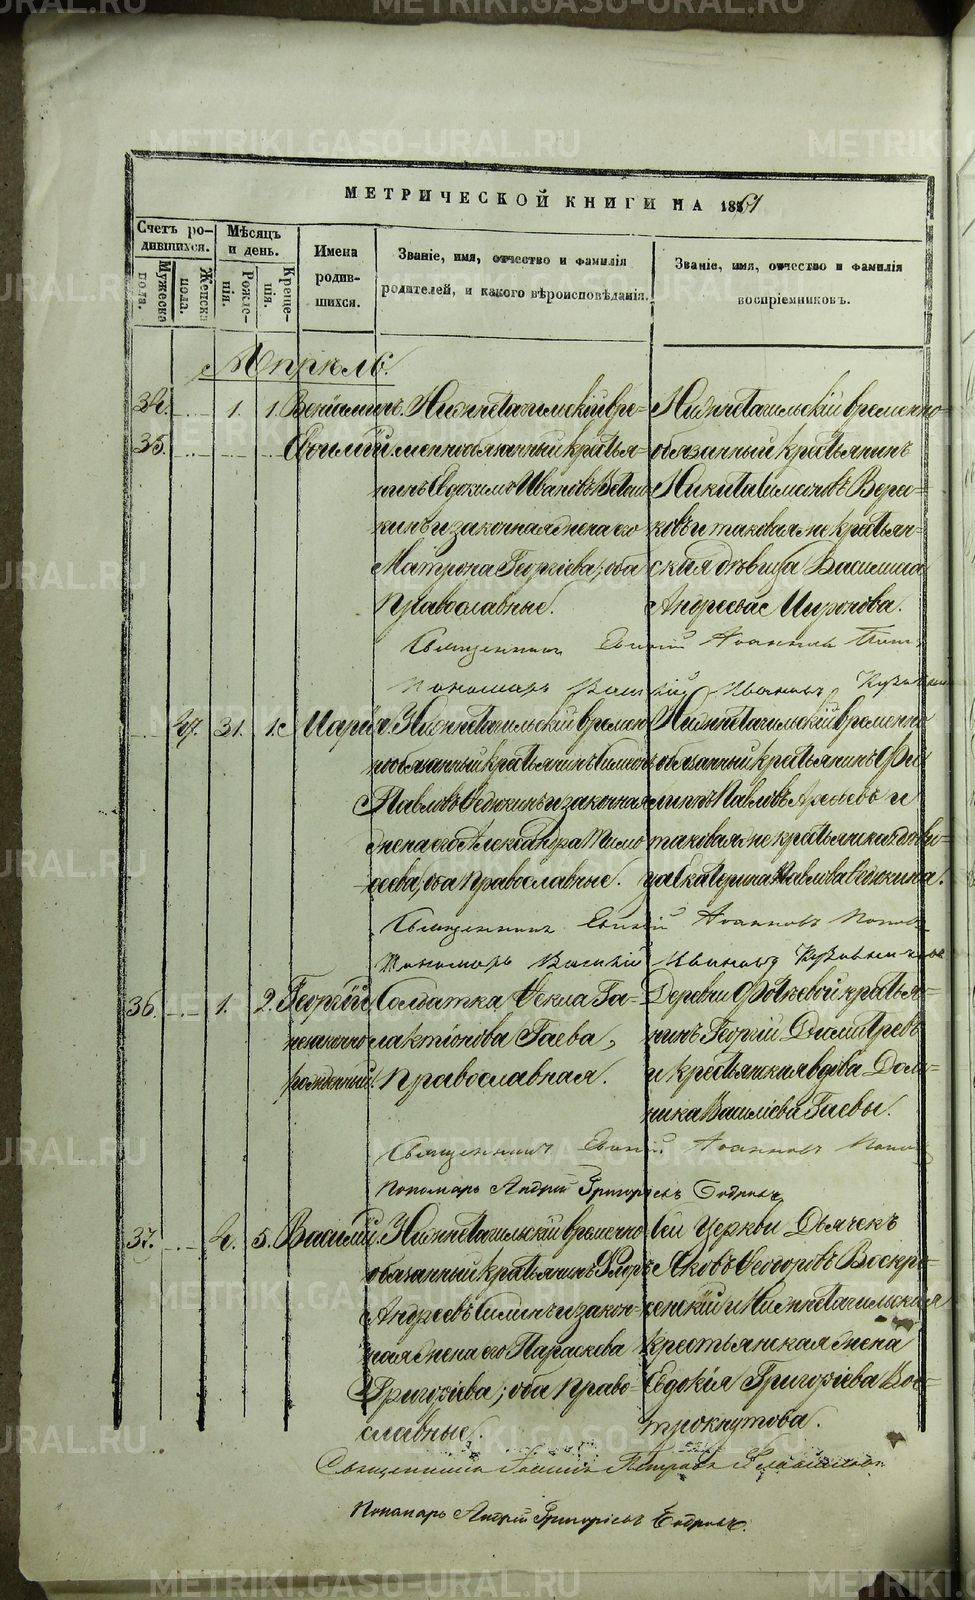 МЕТРИЧЕСКОЙ КНИГИ НА 1861
Счетъ родившихся.
Мужеска пола.
Женска пола.
Мѣсяцъ и день.
Рожденія.
Крещенія.
Имена родившихся.
Званіе, имя, отчество и фамилія родителей, и какого вѣроисповѣданія.
Званіе, имя, отчество и фамилія воспріемниковъ.
Апрѣль.
34. 1. 1. Веніаминъ.
35. Василій.
Нижнетагильскій вре-
меннообязанный крестья-
нинъ Евдокимъ Ивановъ
кинъ и законная жена его
Матрона Георгіева; оба
Православные.
Нижнетагильскій временно-
обязанный крестьянинъ
Никита
ковъ и таковая же крестьян-
ская дѣвица Василиса
Андреева Миронова.
Священникъ Іоанновъ Поповъ
Пономарь Василій Ивановъ
27. 31. 1. Марія.
Нижнетагильскій времен-
нообязанный крестьянинъ
Павловъ и законная
жена его Александра Тимо-
сеева, оба Православные.
Нижнетагильскій временно
обязанный крестьянинъ Фи-
липпъ Павловъ и
таковая же крестьянская дѣви-
ца Екатерина Павлова
Священникъ Іоанновъ Поповъ
Пономарь Василій Ивановъ
36. 1. 2. Георгій,
незаконно
рожденный.
Солдатка Ѳекла Га-
лактіонова Гаева,
Православная.
Деревни крестья-
нинъ Георгій Димитріевъ
и крестьянская вдова Дом-
ника Василіева Гаевы.
Священникъ Іоанновъ Поповъ
Пономарь Андрей Григорьевъ Бобровъ
37. 4. 5. Василій.
Нижнетагильскій временно
обязанный крестьянинъ Ѳедоръ
Андреевъ и закон-
ная жена его Параскева
Григоріева; оба Право-
славные.
сей церкви Дьячекъ
Яковъ Ѳеодоровъ Воскре-
сенскій и Нижнетагильская
крестьянская жена
Евдокія Григоріева Вос-
трокнутова.
Священникъ Іоаннъ Петровъ
Пономарь Андрей Григоріевъ Бобровъ.
METRIKI.GASO-URAL.RU